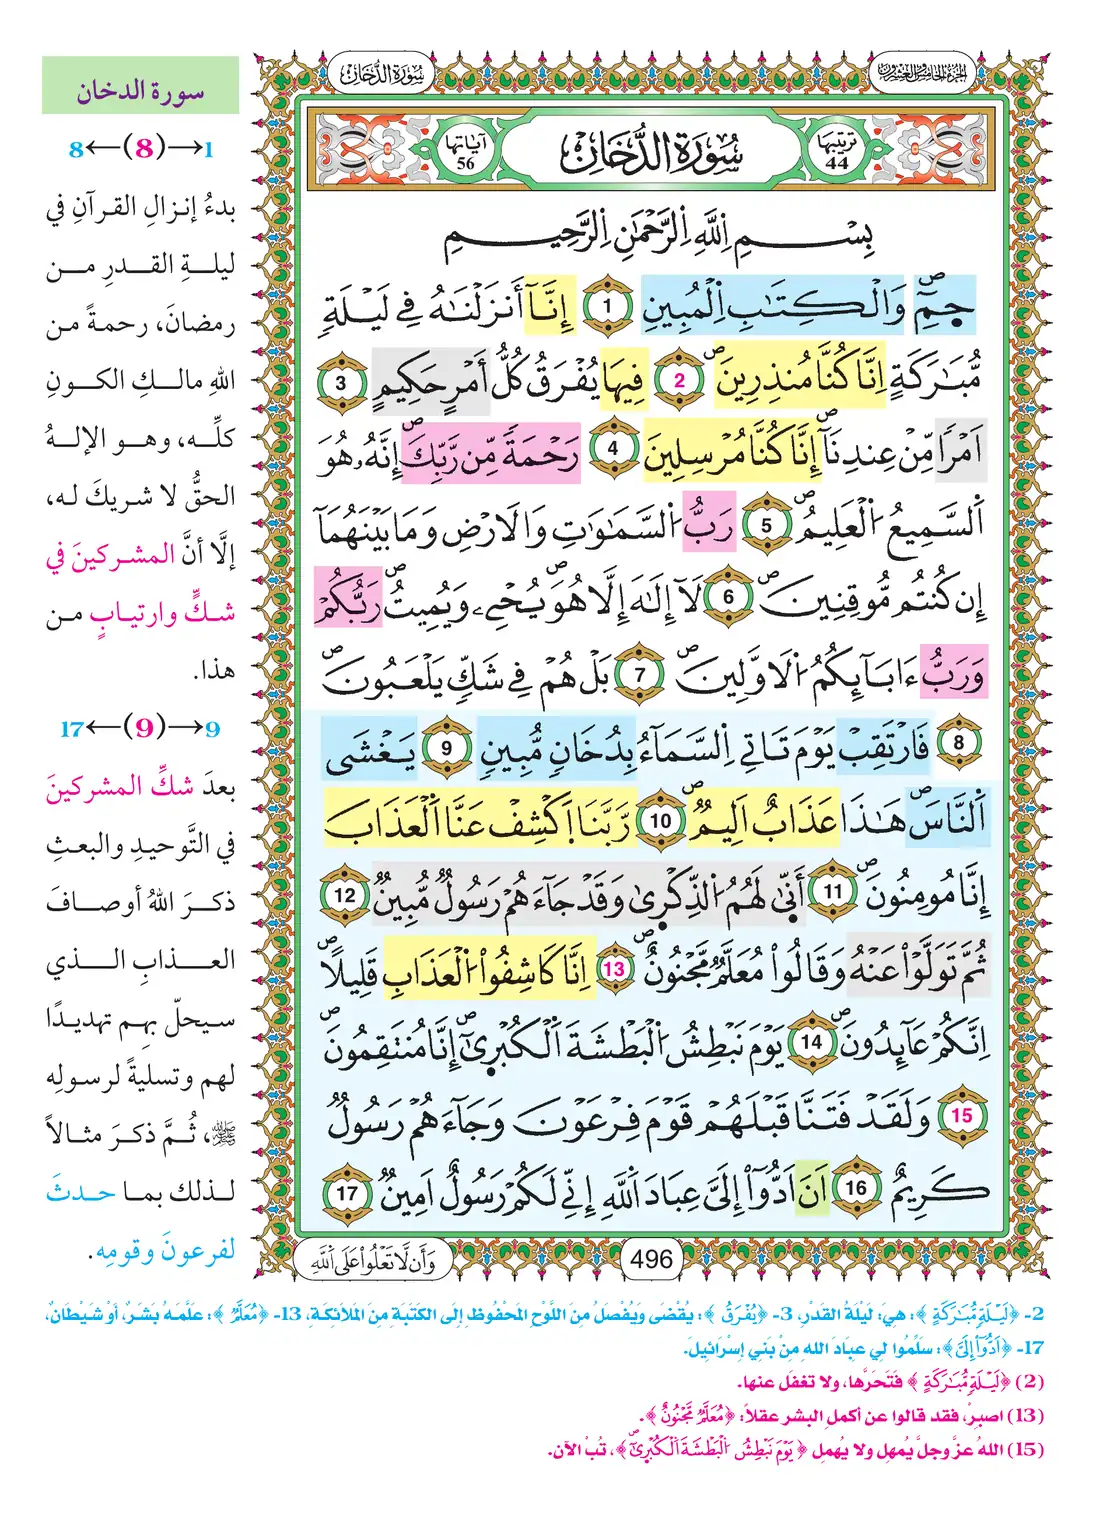 الجزء الخامس والعشرون
سورة الدخان
ترتيبها 44
سُورَةُ الدُّخَانِ
آياتها 56
بِسْمِ اِللَّهِ اِلرَّحْمَٰنِ اِلرَّحِيمِ
جمِّۖ وَالْكِتَٰبِ اِلْمُبِينِ 1 إِنَّآ أَنزَلْنَٰهُ فِے لَيْلَةٖ
مُّبَٰرَكَةٍ اِنَّا كُنَّا مُنذِرِينَۖ 2 فِيهَا يُفْرَقُ كُلُّ أَمْرٍ حَكِيمٍ 3
اَمْراٗ مِّنْ عِندِنَآۖ إِنَّا كُنَّا مُرْسِلِينَ 4 رَحْمَةٗ مِّن رَّبِّكَۖ إِنَّهُۥ هُوَ
اَلسَّمِيعُ اُلْعَلِيمُۖ 5 رَبُّ اُلسَّمَٰوَٰتِ وَالَارْضِ وَمَا بَيْنَهُمَآ
إِن كُنتُم مُّوقِنِينَۖ 6 لَآ إِلَٰهَ إِلَّا هُوَۖ يُحْيِۦ وَيُمِيتُۖ رَبُّكُمْ
وَرَبُّ ءَابَآئِكُمُ اُلَاوَّلِينَۖ 7 بَلْ هُمْ فِے شَكّٖ يَلْعَبُونَۖ
8 فَارْتَقِبْ يَوْمَ تَاتِے اِلسَّمَآءُ بِدُخَانٖ مُّبِينٖ 9 يَغْشَى
اَلنَّاسَۖ هَٰذَا عَذَابٌ اَلِيمٌۖ 10 رَّبَّنَا اَكْشِفْ عَنَّا اَلْعَذَابَ
إِنَّا مُومِنُونَۖ 11 أَنّ۪ىٰ لَهُمُ اُلذِّكْر۪ىٰ وَقَدْ جَآءَهُمْ رَسُولٞ مُّبِينٞ 12
ثُمَّ تَوَلَّوْاْ عَنْهُ وَقَالُواْ مُعَلَّمٞ مَّجْنُونٌۖ 13 اِنَّا كَاشِفُواْ اُلْعَذَابِ قَلِيلاًۖ
اِنَّكُمْ عَآئِدُونَۖ 14 يَوْمَ نَبْطِشُ اُلْبَطْشَةَ اَلْكُبْر۪ىٰٓۖ إِنَّا مُنتَقِمُونَۖ
15 وَلَقَدْ فَتَنَّا قَبْلَهُمْ قَوْمَ فِرْعَوْنَ وَجَآءَهُمْ رَسُولٞ
كَرِيمٌ 16 اَنَ اَدُّوٓاْ إِلَيَّ عِبَادَ اَللَّهِ إِنِّے لَكُمْ رَسُولٌ اَمِينٞ 17
496
وَأَن لَّا تَعْلُواْ عَلَى اَللَّهِ
سورة الدخان
1→(8)←8
بدءُ إنزالِ القرآنِ في
ليلةِ القدرِ من
رمضانَ، رحمةً من
اللهِ مالكِ الكونِ
كلِّه، وهو الإلهُ
الحقُّ لا شريكَ له،
إلَّا أنَّ المشركينَ في
شكٍّ وارتيابٍ من
هذا.
9→(9)←17
بعدَ شكِّ المشركينَ
في التَّوحيدِ والبعثِ
ذكرَ اللهُ أوصافَ
العذابِ الذي
سيحلّ بهِم تهديدًا
لهم وتسليةً لرسولِه
ﷺ، ثُمَّ ذكرَ مثالاً
لذلك بما حدثَ
لفرعونَ وقومِه.
2- ﴿لَيْلَةٖ مُّبَٰرَكَةٍ﴾: هيَ: لَيْلَةُ القَدْرِ، 3- ﴿يُفْرَقُ﴾: يُقْضَى وَيُفْصَلُ مِنَ اللَّوْحِ المَحْفُوظِ إِلَى الكَتَبَةِ مِنَ المَلَائِكَةِ، 13- ﴿مُعَلَّمٞ﴾: عَلَّمَهُ بَشَرٌ، أَوْ شَيْطَانٌ،
17- ﴿أَدُّوٓاْ إِلَيَّ﴾: سَلِّمُوا لِي عِبَادَ اللهِ مِنْ بَنِي إِسْرَائِيلَ.
(2) ﴿لَيْلَةٖ مُّبَٰرَكَةٍ﴾ فَتَحَرَّها، ولا تغفَل عنها.
(13) اصبِرْ، فقد قالوا عن أكملِ البشر عقلاً: ﴿مُعَلَّمٞ مَّجْنُونٌ﴾.
(15) اللهُ عزَّ وجلَّ يُمهِل ولا يُهمِل ﴿يَوْمَ نَبْطِشُ اُلْبَطْشَةَ اَلْكُبْر۪ىٰٓۖ﴾، تُبْ الآن.